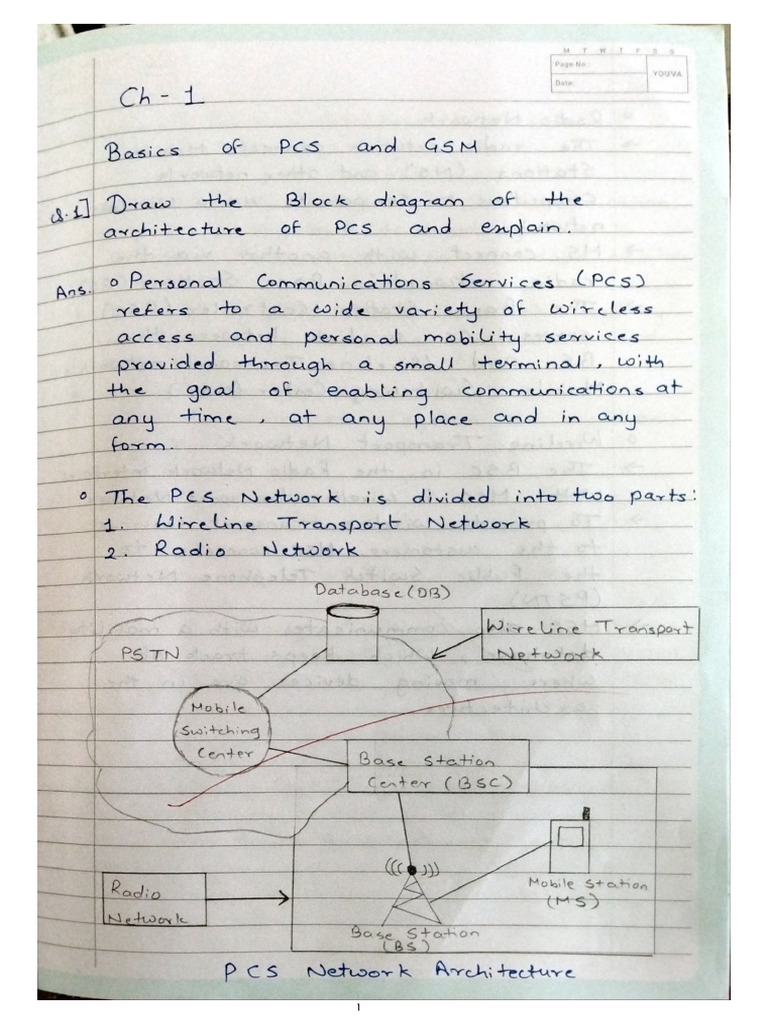 M T W T F S S
Page No.:
Date:
YOUVA
Ch - 1
Basics of PCS and GSM
Q.1] Draw the Block diagram of the
architecture of PCS and explain.
Ans. o Personal Communications Services (PCS)
refers to a wide variety of wireless
access and personal mobility services
provided through a small terminal, with
the goal of enabling communications at
any time, at any place and in any
form.
o The PCS Network is divided into two parts:
1. Wireline Transport Network
2. Radio Network
Database (DB)
Wireline Transport
Network
PSTN
Mobile
Switching
Center
Base Station
Center (BSC)
Mobile Station
(MS)
Radio
Network
Base Station
(BS)
PCS Network Architecture
1